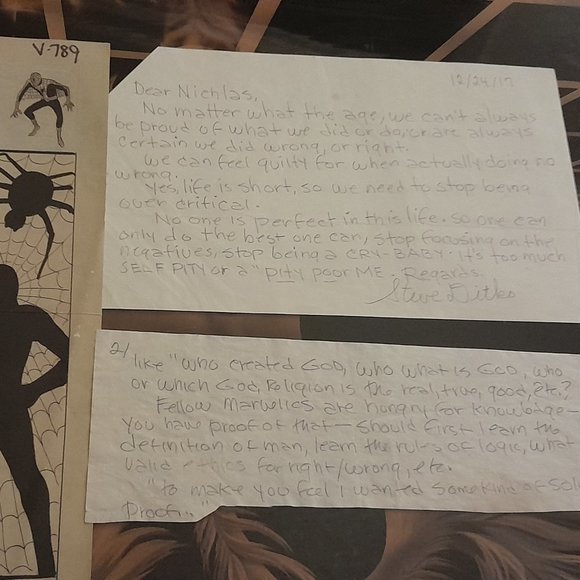 V-789
12/24/17
Dear Nichlas,
No matter what the age, we can't always
be proud of what we did or do, or are always
certain we did wrong, or right.
We can feel guilty for when actually doing no
wrong.
Yes, life is short, so we need to stop being
over critical.
No one is perfect in this life. so one can
only do the best one can, stop focusing on the
negatives, stop being a CRY-BABY. It's too much
SELF PITY or a "pity poor ME. Regards.
Steve Ditko
2/
like "who created GOD, who what is GOD, who
or which God, Religion is the real, true, good, etc.?
Fellow Marvelies are hongry for knowledge—
you have proof of that— should first learn the
definition of man, learn the rules of logic, what
valid ethics for right/wrong, etc.
"To make you feel I wanted some kind of Soli
Proof..."